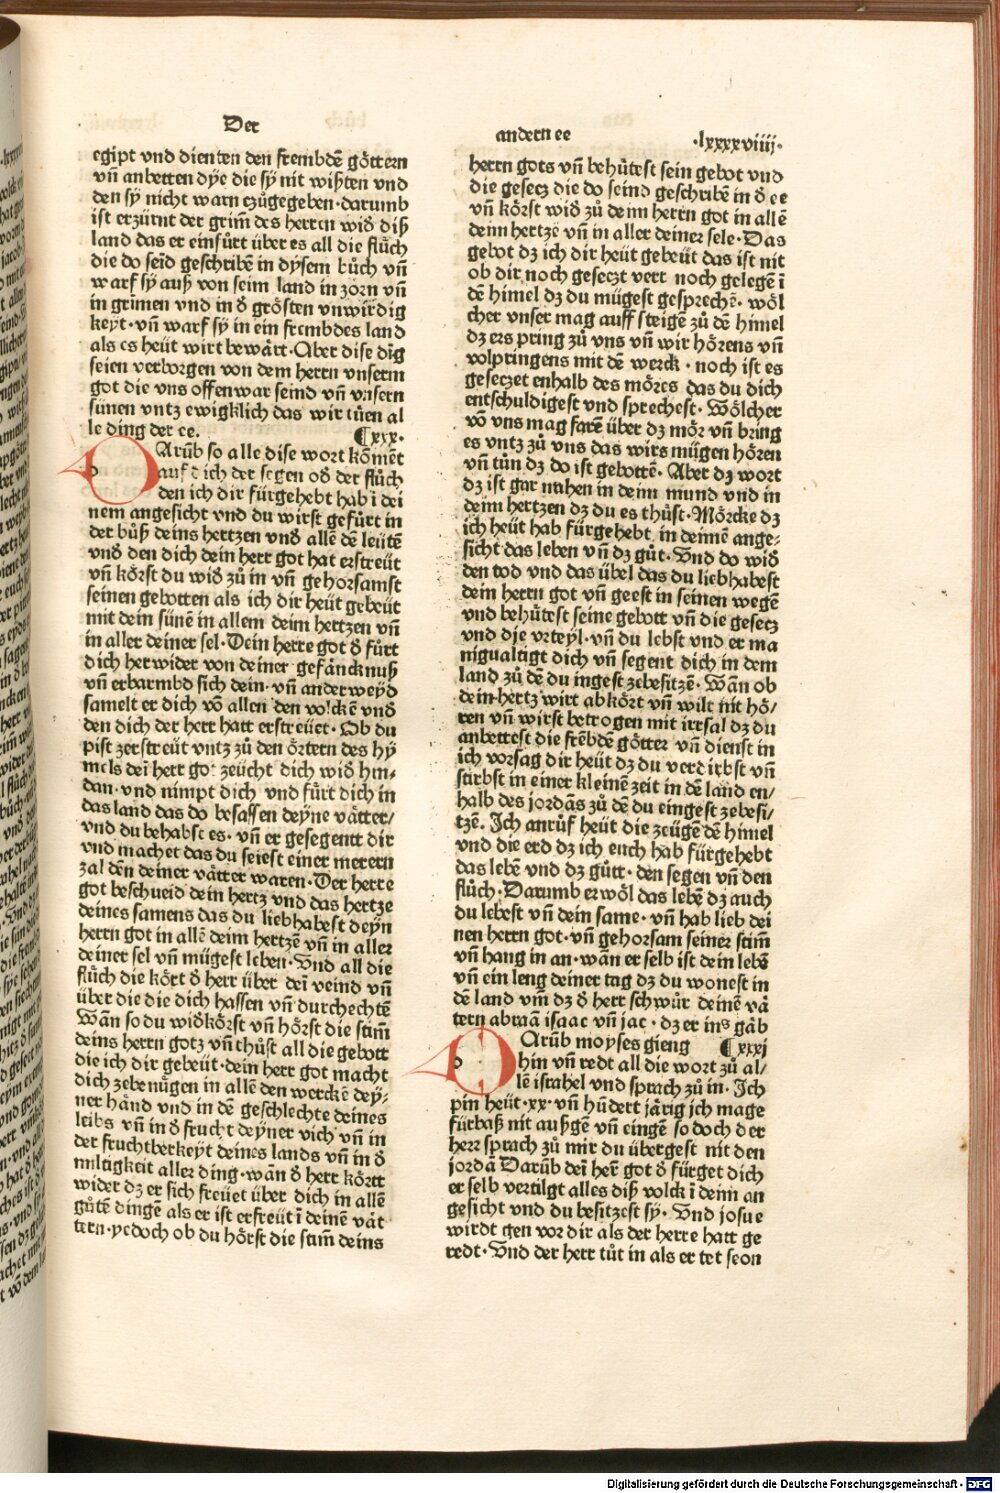 Der
andern ee
·lxxxxviiij·
egipt vnd dienten den frembdē göttern
vn̄ anbetten dÿe die sÿ nit wißten vnd
den sÿ nicht warn czůgegeben·darumb
ist erzürnt der grim̄ des herren wid̄ diß
land das er einfůrt über es all die flůch
die do seīd geschribē in dÿsem bůch vn̄
warf sÿ auß von seim land in zorn vn̄
in grimen vnd in d̄ grösten vnwirdig
keyt·vn̄ warf sÿ in ein frembdes land
als es heüt wirt bewärt·Aber dise dīg
seien verborgen von dem herrn vnserm
got die vns offenwar seind vn̄ vnsern
sünen vntz ewigklich das wir tůen al
le ding der ee.
¶xxx·
DArūb so alle dise wort kōmēt
auf dich der segen od̄ der flůch
den ich dir fürgehebt hab ī dei
nem angesicht vnd du wirst gefürt in
der bůß deins hertzen vnd̄ allē dē leütē
vnd̄ den dich dein herr got hat erstreüt
vn̄ körst du wid̄ zů in vn̄ gehorsamst
seinen gebotten als ich dir heüt gebeüt
mit dein sünē in allem deim hertzen vn̄
in aller deiner sel·Dein herre got d̄ fürt
dich herwider von deiner gefäncknuß
vn̄ erbarmbd sich dein·vn̄ anderweÿd
samelt er dich vō allen den volckē vnd̄
den dich der herr hatt erstreüet·Ob du
pist zerstreüt vntz zů den örtern des hÿ
mels deī herr got zeücht dich wid̄ hin⸗
dan·vnd nimpt dich vnd fůrt dich in
das land das do besassen deÿne vätter/
vnd du behabst es·vn̄ er gesegent dir
vnd machet das du seiest einer merern
zal den deiner vätter waren·Der herre
got beschneid dein hertz vnd das hertze
deines samens das du liebhabest deÿn
herrn got in allē deim hertzē vn̄ in aller
deiner sel vn̄ mügest leben·Vnd all die
flůch die kört d̄ herr über deī veind vn̄
über die die dich hassen vn̄ durchechtē
Wān so du wid̄körst vn̄ hörst die stim̄
deins herrn gotz vn̄ thůst all die gebott
die ich dir gebeüt·dein herr got macht
dich zebenügen in allē den wercke deÿ⸗
ner händ vnd in dē geschlechte deines
leibs vn̄ in d̄ frucht deÿner vich vn̄ in
der fruchtberkeyt deines lands vn̄ in d̄
miltigkeit aller ding·wān d̄ herr körtt
wider dz er sich freüet über dich in allē
gůtē dingē als er ist erfreüt ī deinē vät
tern·yedoch ob du hörst die stim̄ deins
herrn gots vn̄ behůtest sein gebot vnd
die gesecz die do seind geschribē in d̄ ee
vn̄ körst wid̄ zů denn herrn got in allē
denn hertzē vn̄ in aller deiner sele·Das
gebot dz ich dir heüt gebeüt das ist nit
ob dir noch geseczt verr noch gelegē ī
dē himel dz du mügest gesprechē·wöl
cher vnser mag auff steigē zů dē himel
dz ers pring zů vns vn̄ wir hörens vn̄
volpringens mit dē werck·noch ist es
geseczet enhalb des möres das du dich
entschuldigest vnd sprechest·Wölcher
vō vns mag farē über dz mör vn̄ bring
es vntz zů vns das wirs mügen hören
vn̄ tůn dz do ist gebottē·Aber dz wort
dz ist gar nahen in deim mund vnd in
deim hertzen dz du es thůst·Mörcke dz
ich heüt hab fürgehebt in dennē ange⸗
sicht das leben vn̄ dz gůt·Vnd do wid̄
den tod vnd das übel das du liebhabest
dein herrn got vn̄ geest in seinen wegē
vnd behůtest seine gebott vn̄ die gesecz
vnd die vrteyl·vn̄ du lebst vnd er ma
nigualtigt dich vn̄ segent dich in dem
land zů dē du ingest zebesitzē·Wān ob
dein hertz wirt abkört vn̄ wilt nit hö⸗
ren vn̄ wirst betrogen mit irrsal dz du
anbettest die frēbdē götter vn̄ dienst in
ich vorsag dir heüt dz du verdirbst vn̄
stirbst in einer kleinē zeit in dē land en/
halb des jordās zů dē du eingest zebesi/
tzē. Ich anrůf heüt die zeügē dē himel
vnd die erd dz ich euch hab fürgehebt
das lebē vnd dz gůtt·den segen vn̄ den
flůch·Darumb erwöl das lebē dz auch
du lebest vn̄ dein same·vn̄ hab lieb dei
nen herrn got·vn̄ gehorsam seiner stim̄
vn̄ hang in an·wān er selb ist dein lebē
vn̄ ein leng deiner tag dz du wonest in
dē land vm̄ dz d̄ herr schwůr deinē vä
tern abraā isaac vn̄ jac·dz er ins gäb
DArūb moyses gieng ¶xxxj
hin vn̄ redt all die wort zů al/
lē israhel vnd sprach zů in·Ich
pin heüt·xx·vn̄ hūdert järig jch mage
fürbaß nit außgē vn̄ eingē so doch der
herr sprach zů mir du übergest nit den
jordā Darūb deī herr got d̄ fürget dich
er selb vertilgt alles diß volck ī deim an
gesicht vnd du besitzest sÿ·Vnd josue
wirdt gen vor dir als der herre hatt ge
redt·Vnd der herr tůt in als er tet seon
Digitalisierung gefördert durch die Deutsche Forschungsgemeinschaft · DFG